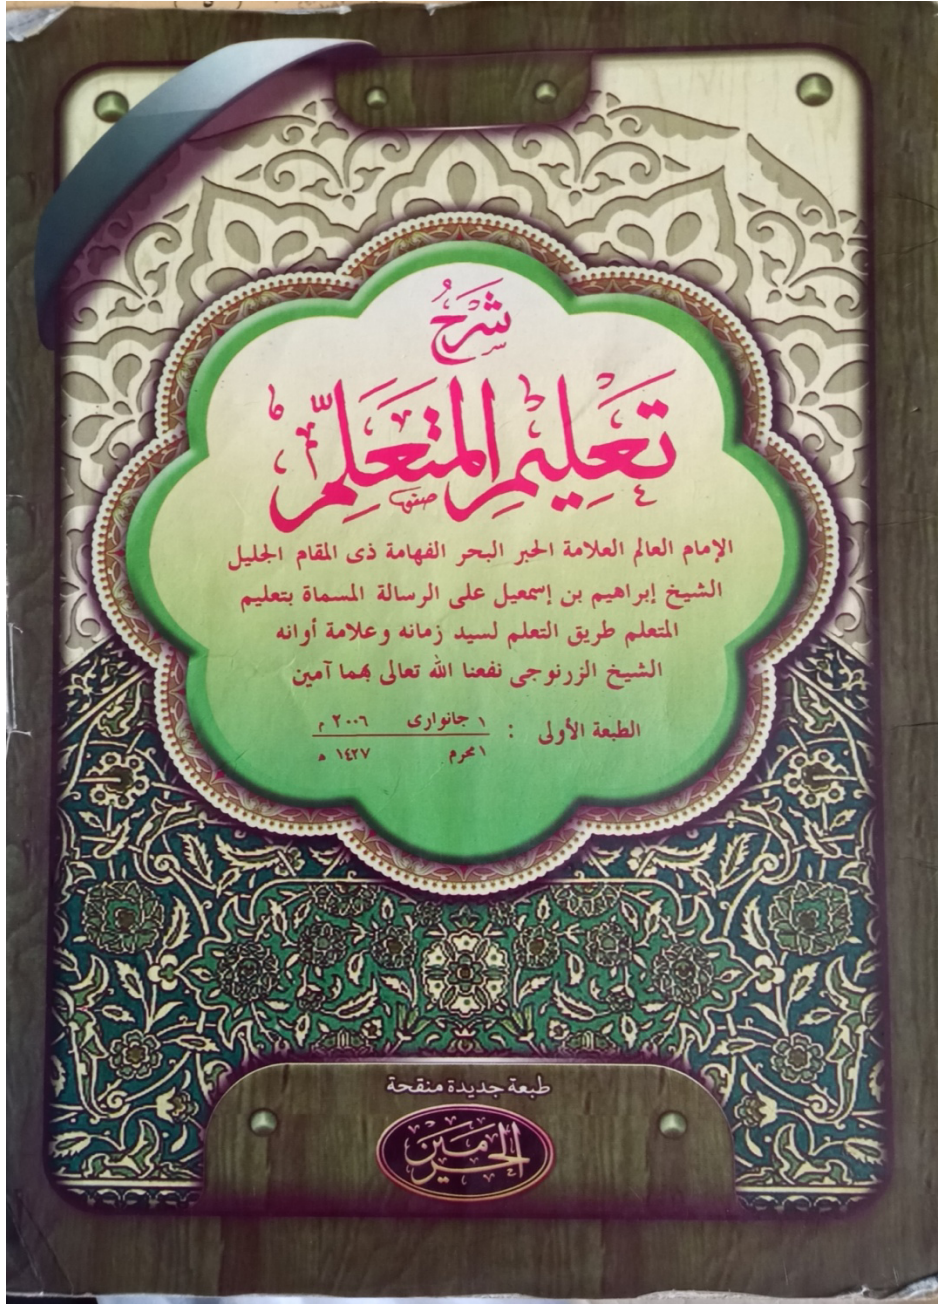 شَرْحُ
تَعْلِيمِ المُتَعَلِّمِ
الإمام العالم العلامة الحبر البحر الفهامة ذى المقام الجليل
الشيخ إبراهيم بن إسمعيل على الرسالة المسماة بتعليم
المتعلم طريق التعلم لسيد زمانه وعلامة أوانه
الشيخ الزرنوجى نفعنا الله تعالى بهما آمين
الطبعة الأولى : ١ جانوارى ٢٠٠٦ م
١ محرم ١٤٢٧ ه
طبعة جديدة منقحة
الحرمين